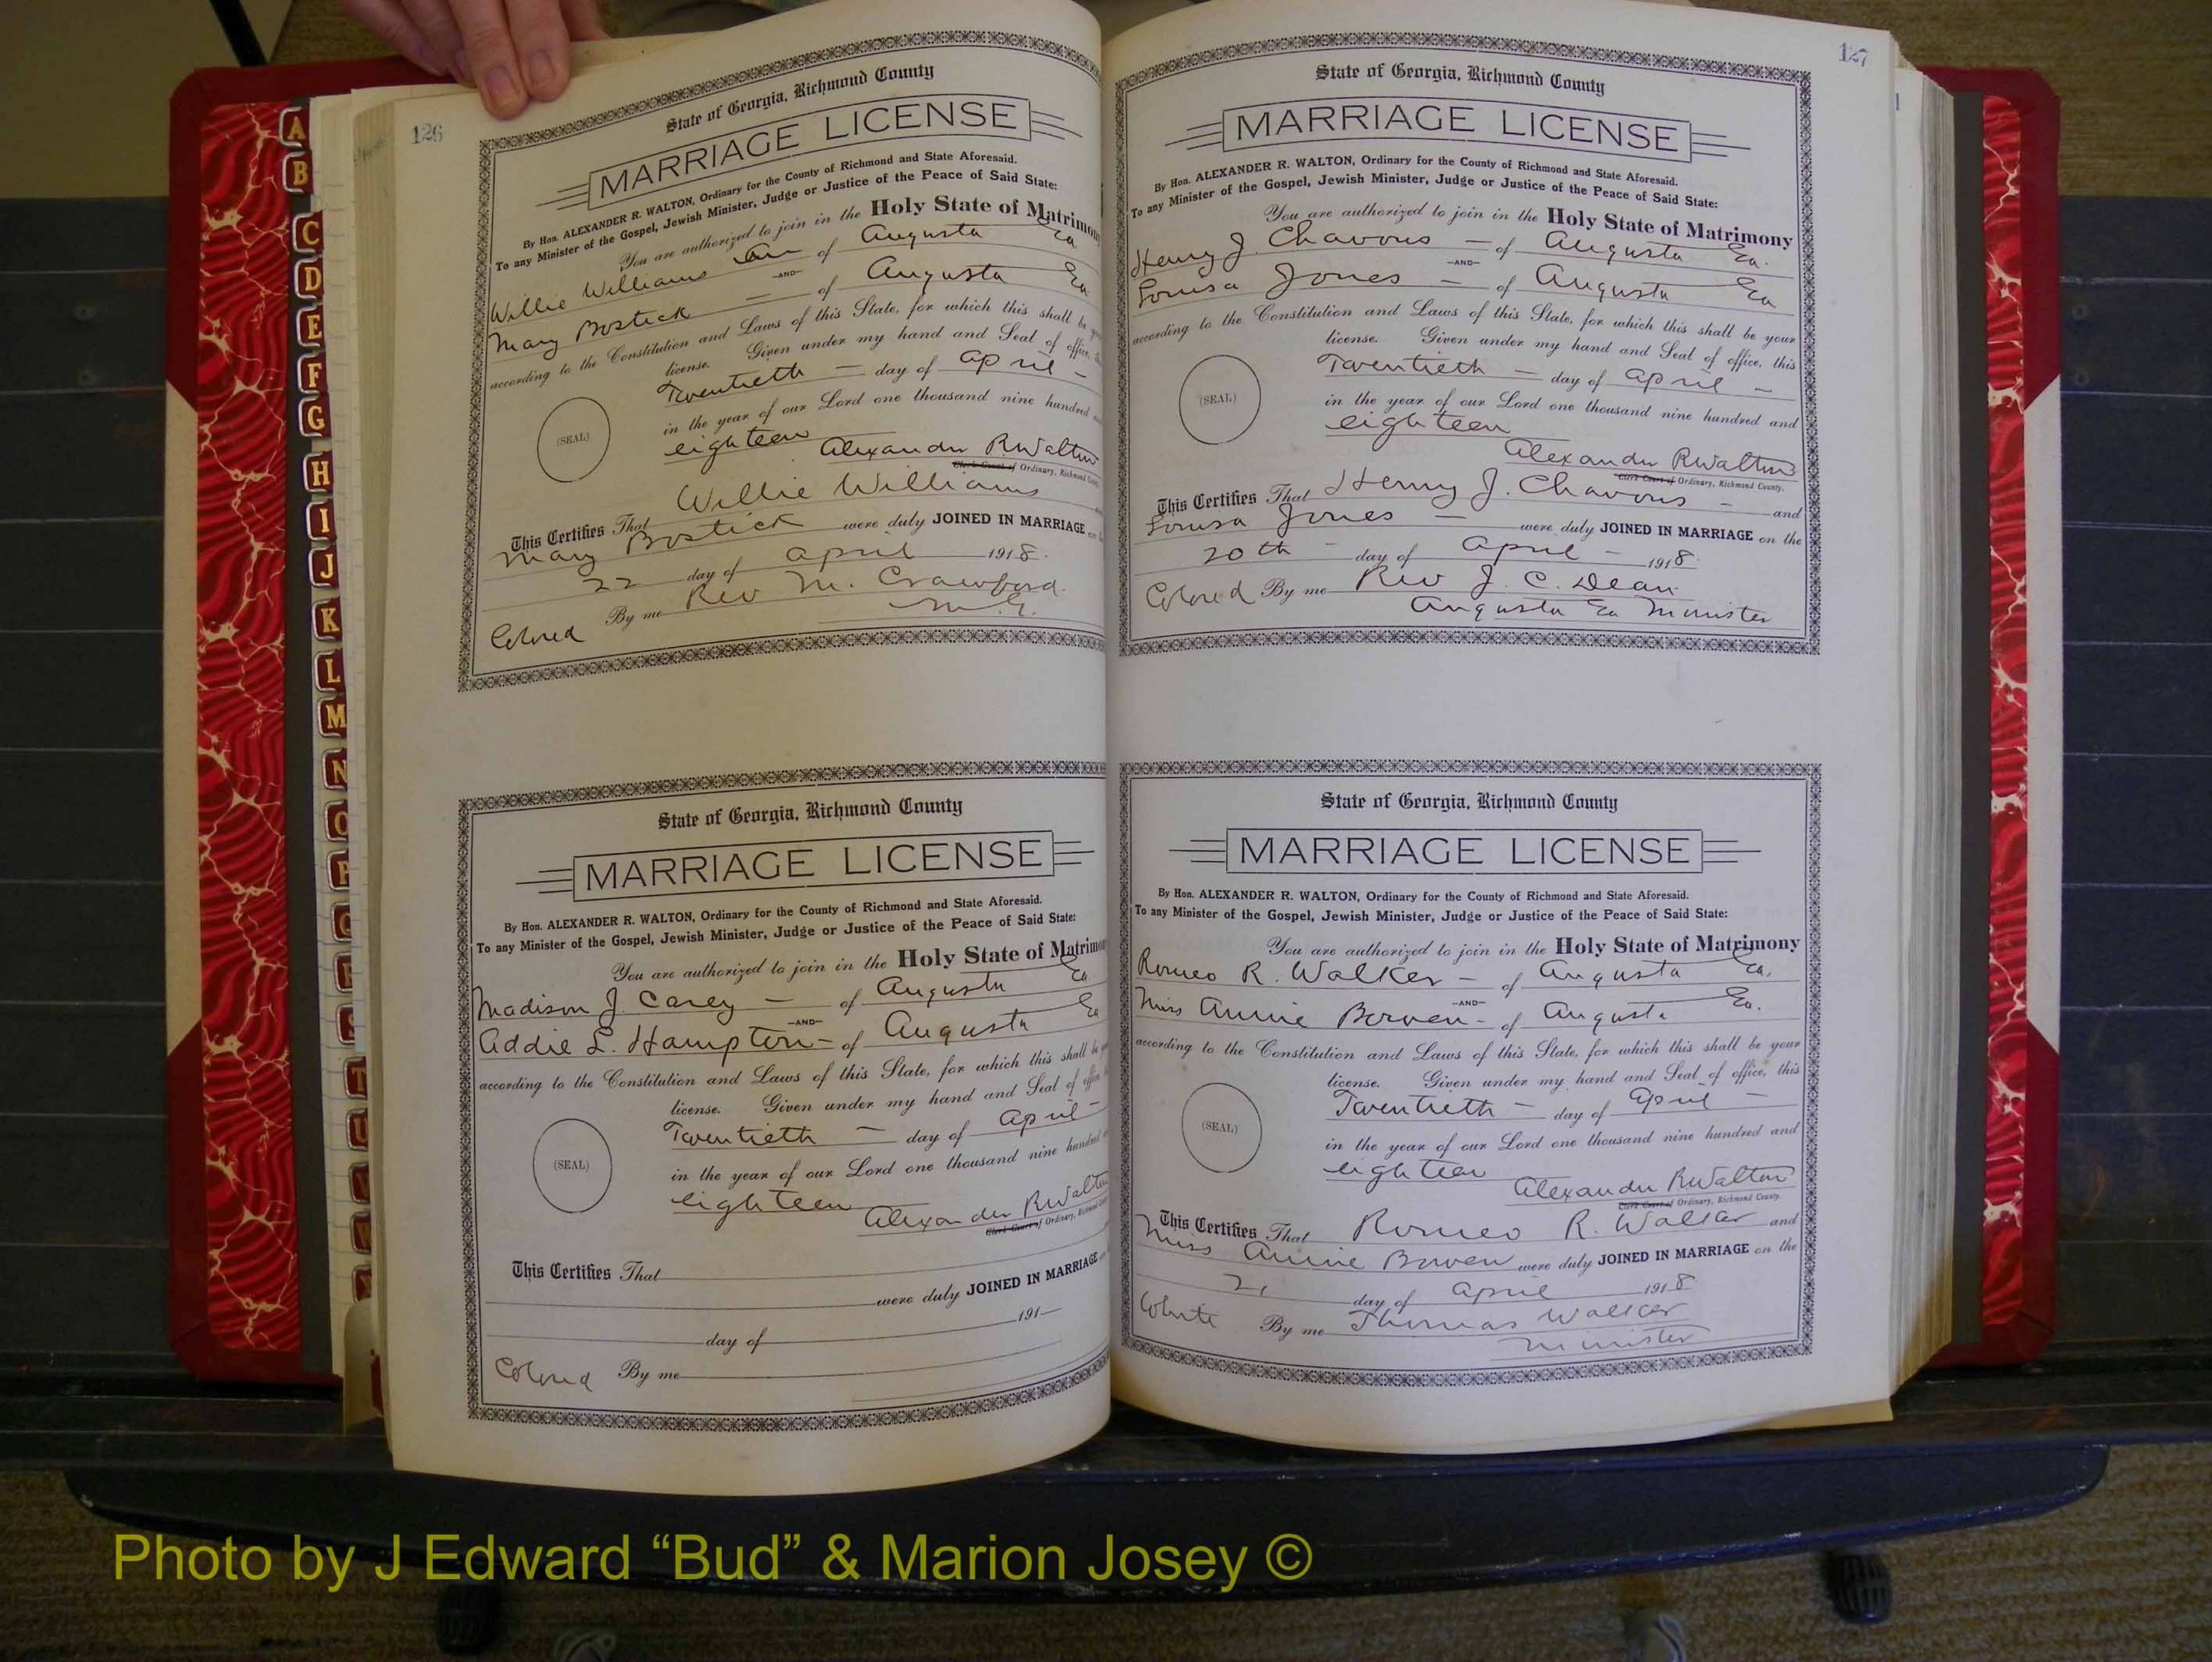 126
State of Georgia, Richmond County
MARRIAGE LICENSE
By Hon. ALEXANDER R. WALTON, Ordinary for the County of Richmond and State Aforesaid.
To any Minister of the Gospel, Jewish Minister, Judge or Justice of the Peace of Said State:
You are authorized to join in the Holy State of Matrimony
Willie Williams of Augusta Ga
—AND—
Mary Bostick — of Augusta Ga
according to the Constitution and Laws of this State, for which this shall be
license. Given under my hand and Seal of office,
Twentieth — day of April —
(SEAL)
in the year of our Lord one thousand nine hundred
eighteen
Alexander R Walton
Clerk Court of Ordinary, Richmond County
This Certifies That Willie Williams
Mary Bostick were duly JOINED IN MARRIAGE on
22 day of April 1918.
By me Rev M. Crawford.
Colored
State of Georgia, Richmond County
MARRIAGE LICENSE
By Hon. ALEXANDER R. WALTON, Ordinary for the County of Richmond and State Aforesaid.
To any Minister of the Gospel, Jewish Minister, Judge or Justice of the Peace of Said State:
You are authorized to join in the Holy State of Matrimon
Madison J. Carey — of Augusta Ga
—AND—
Addie L. Hampton — of Augusta Ga
according to the Constitution and Laws of this State, for which this shall be
license. Given under my hand and Seal of office
Twentieth — day of April —
(SEAL)
in the year of our Lord one thousand nine hundred
eighteen
Alexander R Walton
Clerk Court of Ordinary, Richmond
This Certifies That
were duly JOINED IN MARRIAGE
day of 191—
Colored By me
127
State of Georgia, Richmond County
MARRIAGE LICENSE
By Hon. ALEXANDER R. WALTON, Ordinary for the County of Richmond and State Aforesaid.
To any Minister of the Gospel, Jewish Minister, Judge or Justice of the Peace of Said State:
You are authorized to join in the Holy State of Matrimony
Henry J. Chavous — of Augusta Ga.
—AND—
Louisa Jones — of Augusta Ga
according to the Constitution and Laws of this State, for which this shall be your
license. Given under my hand and Seal of office, this
Twentieth — day of April —
(SEAL)
in the year of our Lord one thousand nine hundred and
eighteen
Alexander R Walton
Clerk Court of Ordinary, Richmond County.
This Certifies That Henry J. Chavous — and
Louisa Jones — were duly JOINED IN MARRIAGE on the
20th — day of April — 1918.
Colored By me Rev J. C. Dean.
Augusta Ga Minister
State of Georgia, Richmond County
MARRIAGE LICENSE
By Hon. ALEXANDER R. WALTON, Ordinary for the County of Richmond and State Aforesaid.
To any Minister of the Gospel, Jewish Minister, Judge or Justice of the Peace of Said State:
You are authorized to join in the Holy State of Matrimony
Romeo R. Walker — of Augusta Ga.
—AND—
Miss Annie Bowen — of Augusta Ga.
according to the Constitution and Laws of this State, for which this shall be your
license. Given under my hand and Seal of office, this
Twentieth — day of April —
(SEAL)
in the year of our Lord one thousand nine hundred and
eighteen
Alexander R Walton
Clerk Court of Ordinary, Richmond County.
This Certifies That Romeo R. Walker and
Miss Annie Bowen were duly JOINED IN MARRIAGE on the
21 day of April 1918
White By me Thomas Walker
Minister
A
B
C
D
E
F
G
H
I
J
K
L
M
N
O
P
Q
R
S
T
U
V
W
Photo by J Edward “Bud” & Marion Josey ©